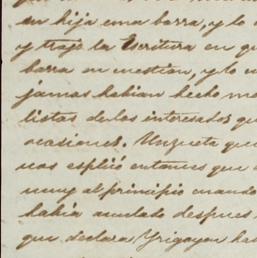 su hija una barra, y lo
y trajo la Escritura en qu
barra en cuestion, y lo
jamas habian hecho m
listas de los interesados qu
ocasiones. Unzueta que
nos esplicó entonces que
muy al principio cuando
habia anulado despues
que declara Yrigoyen has